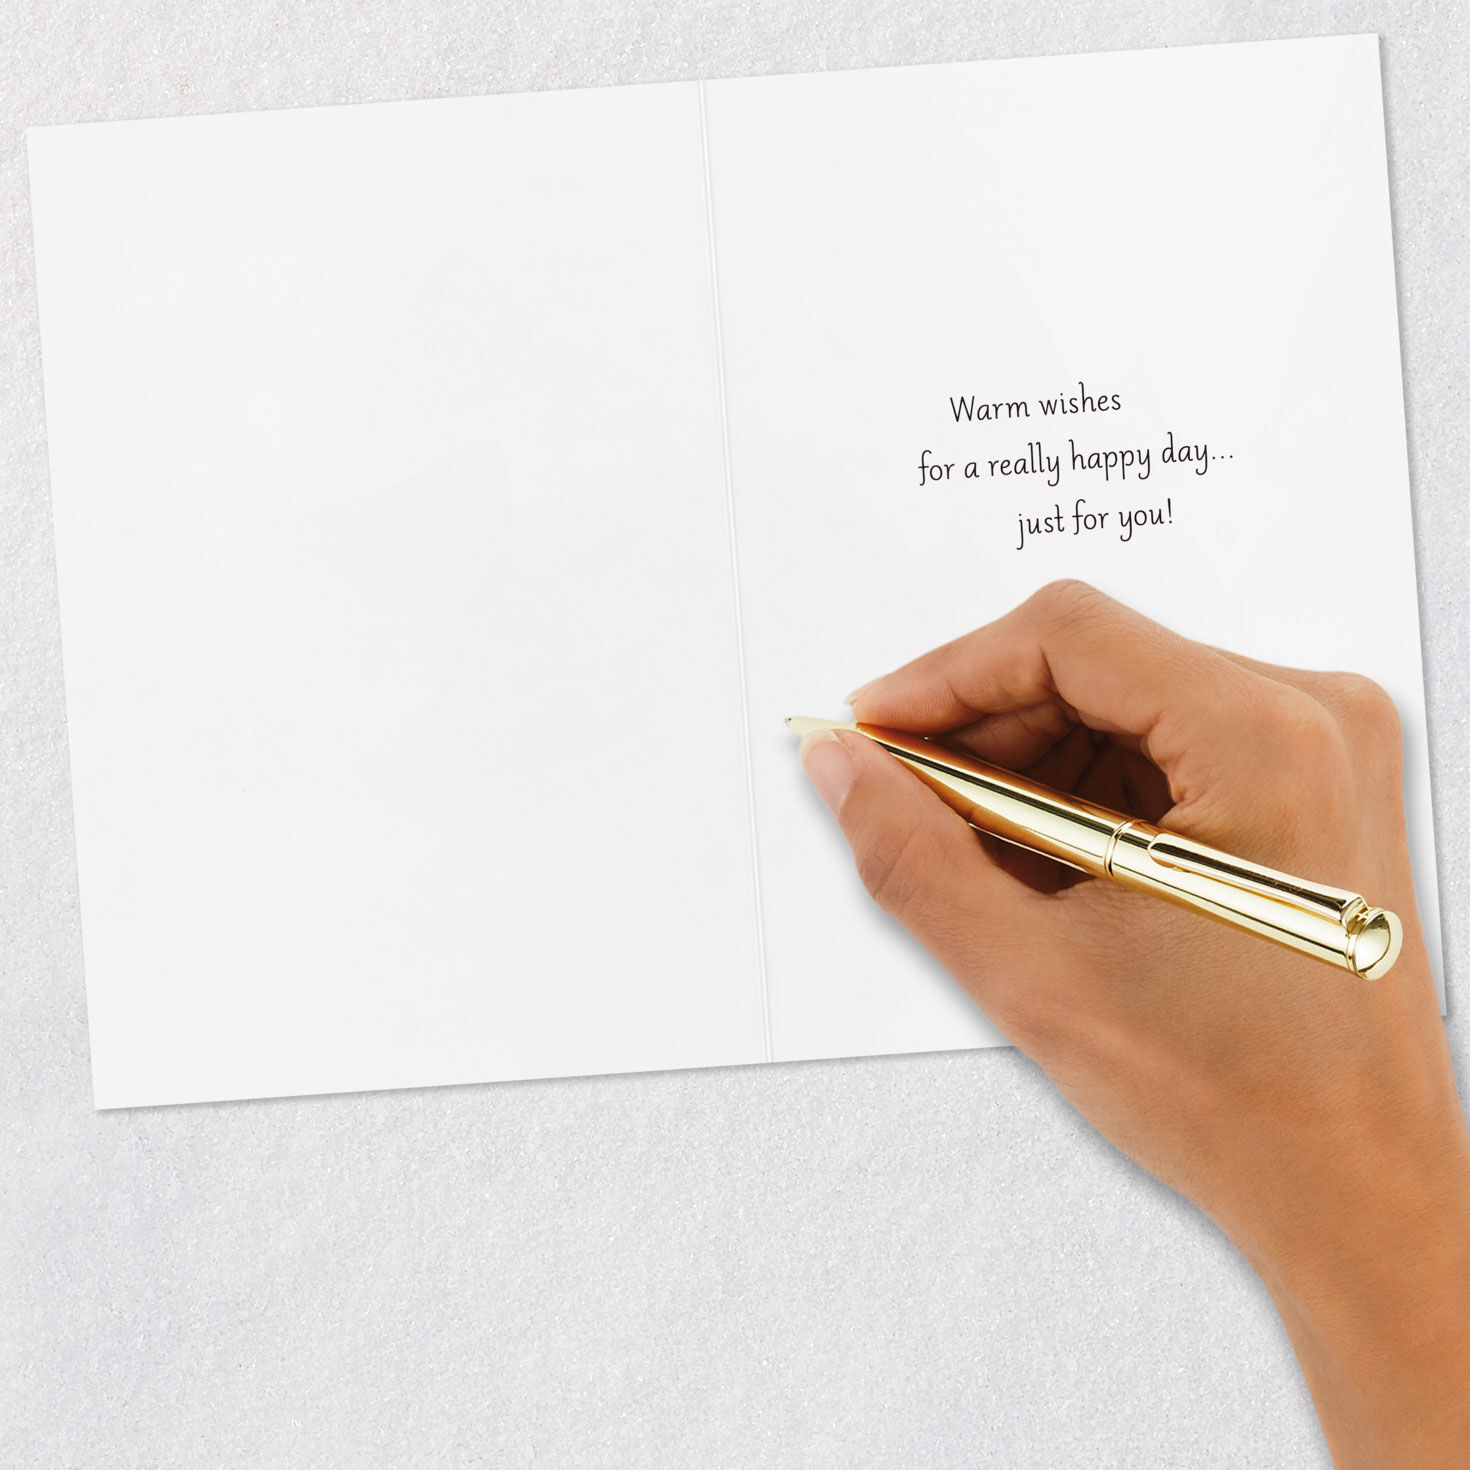 Warm wishes
for a really happy day...
just for you!